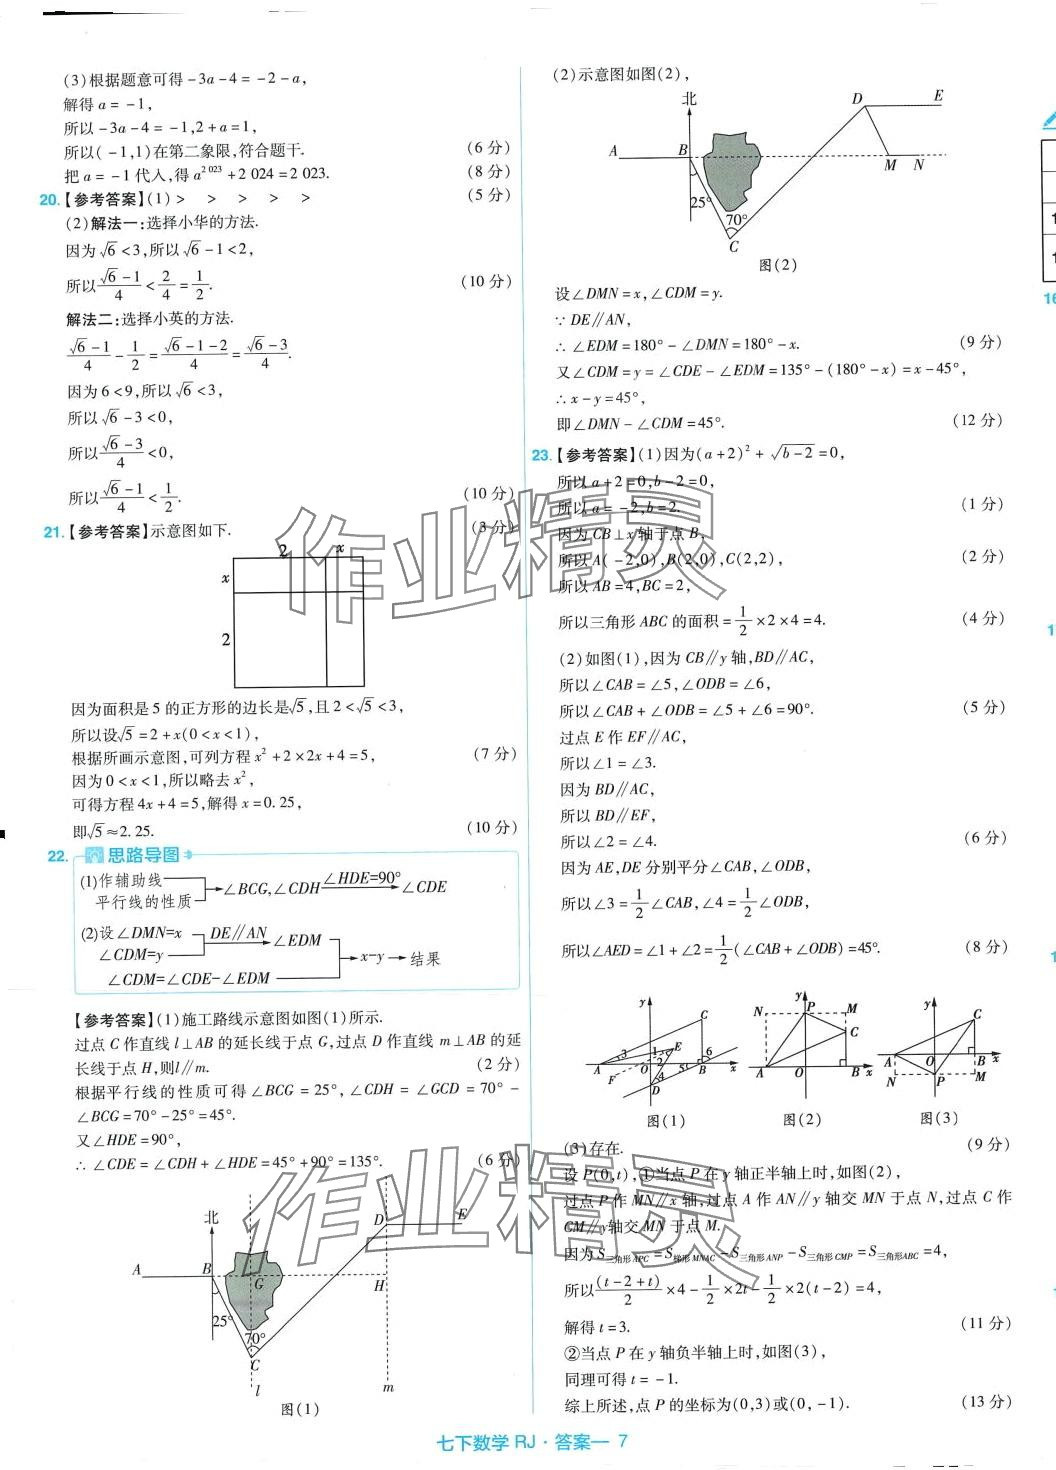 (3)根据题意可得-3a-4=-2-a,
解得a=-1,
所以-3a-4=-1,2+a=1,
所以(-1,1)在第二象限,符合题干. (6分)
把a=-1代人,得a^{2 023}+2 024=2 023. (8分)
20.【参考答案】(1)> > > > > (5分)
(2)解法一:选择小华的方法.
因为√6<3,所以√6-1<2,
所以(√6-1)/4<2/4=1/2. (10分)
解法二:选择小英的方法.
(√6-1)/4-1/2=(√6-1-2)/4=(√6-3)/4.
因为6<9,所以√6<3,
所以√6-3<0,
所以(√6-3)/4<0,
所以(√6-1)/4<1/2. (10分)
21.【参考答案】示意图如下. (3分)
2 x
x
2
因为面积是5的正方形的边长是√5,且2<√5<3,
所以设√5=2+x(0<x<1),
根据所画示意图,可列方程x²+2×2x+4=5, (7分)
因为0<x<1,所以略去x²,
可得方程4x+4=5,解得x=0.25,
即√5≈2.25. (10分)
22. 思路导图
(1)作辅助线
平行线的性质
∠BCG,∠CDH ∠HDE=90° ∠CDE
(2)设∠DMN=x DE∥AN ∠EDM
∠CDM=y
x-y 结果
∠CDM=∠CDE-∠EDM
【参考答案】(1)施工路线示意图如图(1)所示.
过点C作直线l⊥AB的延长线于点G,过点D作直线m⊥AB的延
长线于点H,则l∥m. (2分)
根据平行线的性质可得∠BCG=25°,∠CDH=∠GCD=70°-
∠BCG=70°-25°=45°.
又∠HDE=90°,
∴∠CDE=∠CDH+∠HDE=45°+90°=135°. (6分)
北 D E
A B G H
25°
70°
C
l m
图(1)
(2)示意图如图(2),
北 D E
A B M N
25°
70°
C
图(2)
设∠DMN=x,∠CDM=y.
∵DE∥AN,
∴∠EDM=180°-∠DMN=180°-x. (9分)
又∠CDM=y=∠CDE-∠EDM=135°-(180°-x)=x-45°,
∴x-y=45°,
即∠DMN-∠CDM=45°. (12分)
23.【参考答案】(1)因为(a+2)²+√(b-2)=0,
所以a+2=0,b-2=0,
所以a=-2,b=2. (1分)
因为CB⊥x轴于点B,
所以A(-2,0),B(2,0),C(2,2), (2分)
所以AB=4,BC=2,
所以三角形ABC的面积=1/2×2×4=4. (4分)
(2)如图(1),因为CB∥y轴,BD∥AC,
所以∠CAB=∠5,∠ODB=∠6,
所以∠CAB+∠ODB=∠5+∠6=90°. (5分)
过点E作EF∥AC,
所以∠1=∠3.
因为BD∥AC,
所以BD∥EF,
所以∠2=∠4. (6分)
因为AE,DE分别平分∠CAB,∠ODB,
所以∠3=1/2∠CAB,∠4=1/2∠ODB,
所以∠AED=∠1+∠2=1/2(∠CAB+∠ODB)=45°. (8分)
y C 3 1 E 2 6 A O B x F 4 5 D
图(1)
N y P M C A O B x
图(2)
y C A O B x N P M
图(3)
(3)存在. (9分)
设P(0,t),①当点P在y轴正半轴上时,如图(2),
过点P作MN∥x轴,过点A作AN∥y轴交MN于点N,过点C作
CM∥y轴交MN于点M.
因为S三角形APC=S梯形MNAC-S三角形ANP-S三角形CMP=S三角形ABC=4,
所以(t-2+t)/2×4-1/2×2t-1/2×2(t-2)=4,
解得t=3. (11分)
②当点P在y轴负半轴上时,如图(3),
同理可得t=-1.
综上所述,点P的坐标为(0,3)或(0,-1). (13分)
作业精灵
作业精灵
七下数学RJ·答案—7
16